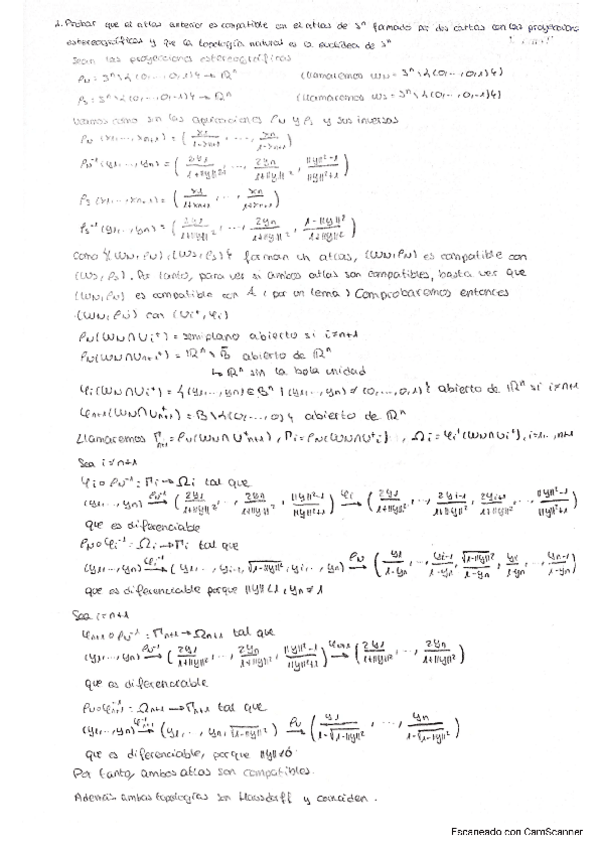 1. Probar que el atlas anterior es compatible con el atlas de Sⁿ formado por dos cartas con las proyecciones
estereográficas y que la topología natural es la euclídea de Sⁿ
Sean las proyecciones estereográficas
P_N: Sⁿ \ {(0,…,0,1)} → ℝⁿ (llamaremos W_N = Sⁿ \ {(0,…,0,1)})
P_S: Sⁿ \ {(0,…,0,-1)} → ℝⁿ (llamaremos W_S = Sⁿ \ {(0,…,0,-1)})
Veamos como son las aplicaciones P_N y P_S y sus inversas
P_N(x₁,…,xₙ₊₁) = (x₁/(1-xₙ₊₁), …, xₙ/(1-xₙ₊₁))
P_N⁻¹(y₁,…,yₙ) = (2y₁/(1+||y||²), …, 2yₙ/(1+||y||²), (||y||²-1)/(||y||²+1))
P_S(x₁,…,xₙ₊₁) = (x₁/(1+xₙ₊₁), …, xₙ/(1+xₙ₊₁))
P_S⁻¹(y₁,…,yₙ) = (2y₁/(1+||y||²), …, 2yₙ/(1+||y||²), (1-||y||²)/(1+||y||²))
Como {(W_N,P_N),(W_S,P_S)} forman un atlas, (W_N,P_N) es compatible con
(W_S,P_S). Por tanto, para ver si ambos atlas son compatibles, basta ver que
(W_N,P_N) es compatible con A (por un lema) Comprobaremos entonces
(W_N,P_N) con (Uᵢ⁺,φᵢ)
P_N(W_N∩Uᵢ⁺) = semiplano abierto si i≠n+1
P_N(W_N∩Uₙ₊₁⁺) = ℝⁿ \ B̄ abierto de ℝⁿ
↳ ℝⁿ sin la bola unidad
φᵢ(W_N∩Uᵢ⁺) = {(y₁,…,yₙ)∈Bⁿ | (y₁,…,yₙ) ≠ (0,…,0,1)} abierto de ℝⁿ si i≠n+1
φₙ₊₁(W_N∩Uₙ₊₁⁺) = B \ {(0,…,0)} abierto de ℝⁿ
Llamaremos Πₙ₊₁ = P_N(W_N∩Uₙ₊₁⁺), Πᵢ = P_N(W_N∩Uᵢ⁺), Ωᵢ = φᵢ(W_N∩Uᵢ⁺), i=1,…,n+1
Sea i≠n+1
φᵢ∘P_N⁻¹: Πᵢ → Ωᵢ tal que
(y₁,…,yₙ) →P_N⁻¹ (2y₁/(1+||y||²), …, 2yₙ/(1+||y||²), (||y||²-1)/(||y||²+1)) →φᵢ (2y₁/(1+||y||²), …, 2yᵢ₋₁/(1+||y||²), 2yᵢ₊₁/(1+||y||²), …, (||y||²-1)/(||y||²+1))
que es diferenciable
P_N∘φᵢ⁻¹: Ωᵢ → Πᵢ tal que
(y₁,…,yₙ) →φᵢ⁻¹ (y₁,…,yᵢ₋₁,√(1-||y||²),yᵢ,…,yₙ) →P_N (y₁/(1-yₙ), …, yᵢ₋₁/(1-yₙ), √(1-||y||²)/(1-yₙ), yᵢ/(1-yₙ), …, yₙ₋₁/(1-yₙ))
que es diferenciable porque ||y||<1, yₙ≠1
Sea i=n+1
φₙ₊₁∘P_N⁻¹: Πₙ₊₁ → Ωₙ₊₁ tal que
(y₁,…,yₙ) →P_N⁻¹ (2y₁/(1+||y||²), …, 2yₙ/(1+||y||²), (||y||²-1)/(||y||²+1)) →φₙ₊₁ (2y₁/(1+||y||²), …, 2yₙ/(1+||y||²))
que es diferenciable
P_N∘φₙ₊₁⁻¹: Ωₙ₊₁ → Πₙ₊₁ tal que
(y₁,…,yₙ) →φₙ₊₁⁻¹ (y₁,…,yₙ,√(1-||y||²)) →P_N (y₁/(1-√(1-||y||²)), …, yₙ/(1-√(1-||y||²)))
que es diferenciable, porque ||y||≠0
Por tanto, ambos atlas son compatibles.
Además ambas topologías son Hausdorff y coinciden.
Escaneado con CamScanner